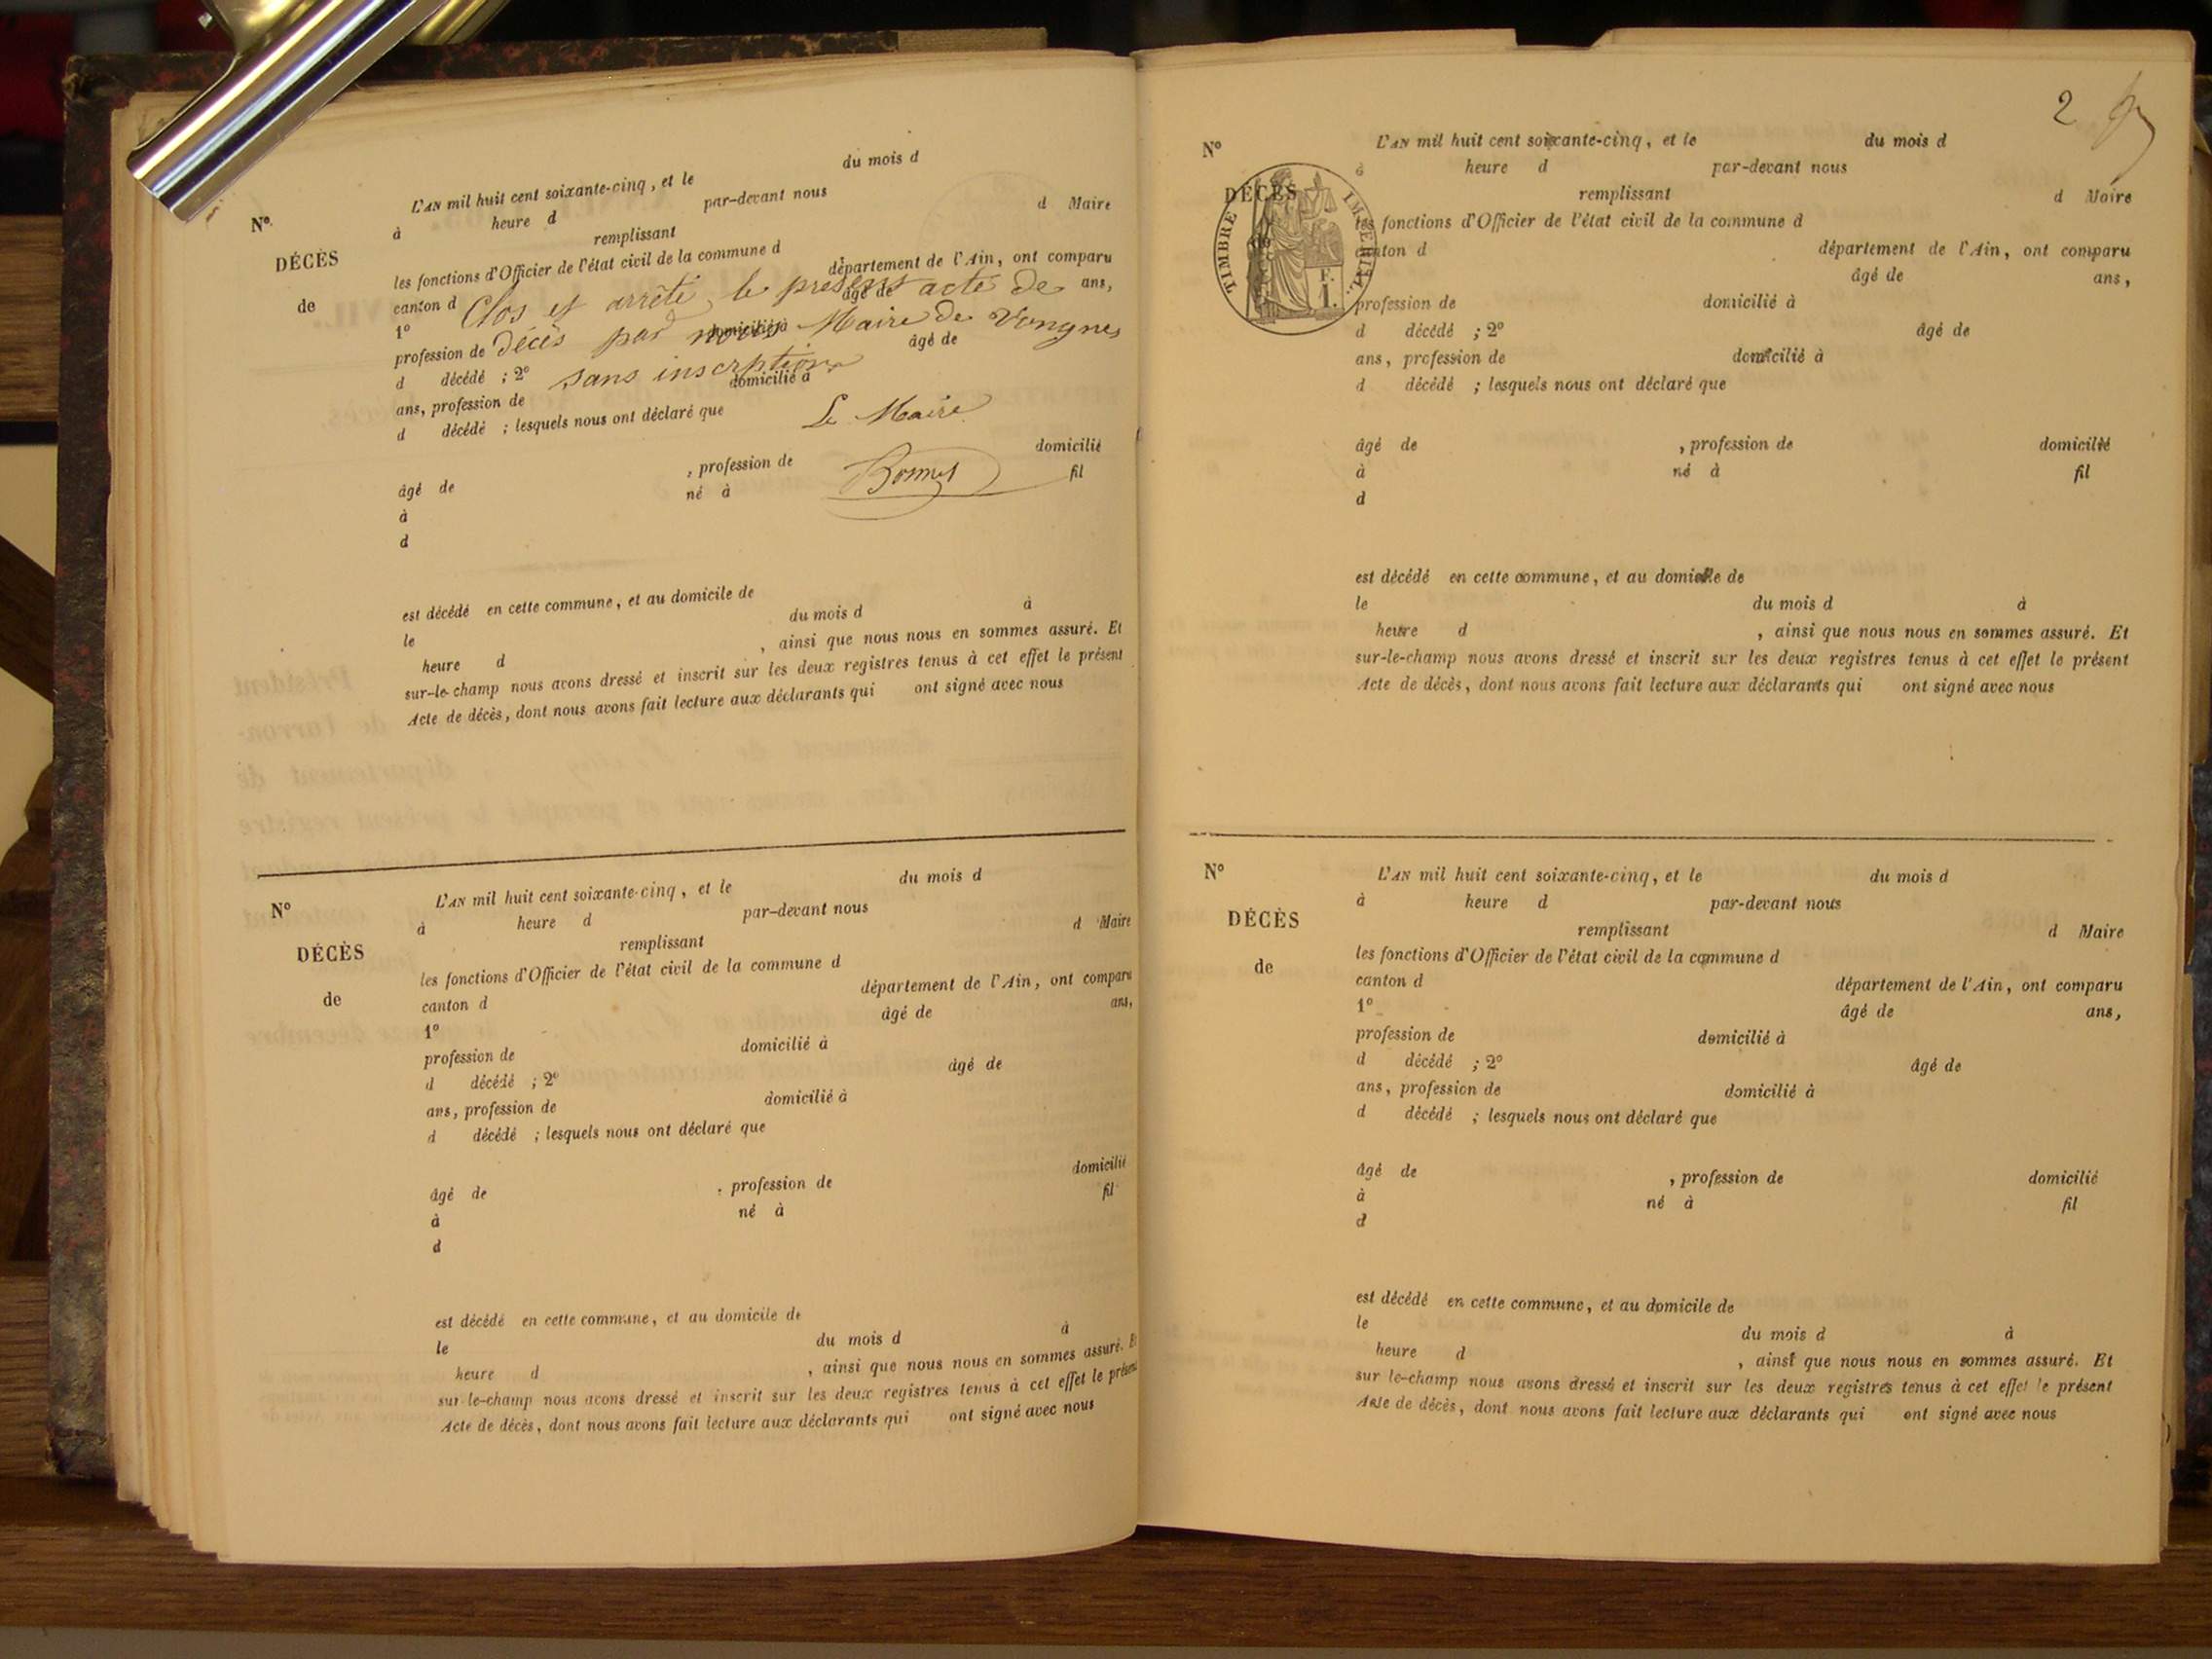 du mois d
L'AN mil huit cent soixante-cinq, et le
par-devant nous
No.
à heure d
d Maire
remplissant
DÉCÈS
les fonctions d'Officier de l'état civil de la commune d
département de l'Ain, ont comparu
de
canton d
Clos et arrêté le présent acte de
âgé de
ans,
1o
profession de
décès par nous Maire de Vongnes
domicilié à
âgé de
d décédé ; 2o
sans inscrption
domicilié à
ans, profession de
d décédé ; lesquels nous ont déclaré que
Le Maire
domicilié
, profession de
Bonnet
fil
âgé de
né à
à
d
est décédé en cette commune, et au domicile de
le du mois d à
heure d , ainsi que nous nous en sommes assuré. Et
sur-le-champ nous avons dressé et inscrit sur les deux registres tenus à cet effet le présent
Acte de décès, dont nous avons fait lecture aux déclarants qui ont signé avec nous
No
L'AN mil huit cent soixante-cinq, et le du mois d
à heure d par-devant nous
DÉCÈS
remplissant d Maire
les fonctions d'Officier de l'état civil de la commune d
de
canton d département de l'Ain, ont comparu
1o âgé de ans,
profession de domicilié à
d décédé ; 2o âgé de
ans, profession de domicilié à
d décédé ; lesquels nous ont déclaré que
âgé de , profession de domicilié
à né à fil
d
est décédé en cette commune, et au domicile de
le du mois d à
heure d , ainsi que nous nous en sommes assuré. Et
sur-le-champ nous avons dressé et inscrit sur les deux registres tenus à cet effet le présent
Acte de décès, dont nous avons fait lecture aux déclarants qui ont signé avec nous
2
No
L'AN mil huit cent soixante-cinq, et le du mois d
à heure d par-devant nous
DÉCÈS
remplissant d Maire
TIMBRE IMPÉRIAL
F.
1.
les fonctions d'Officier de l'état civil de la commune d
de
canton d département de l'Ain, ont comparu
âgé de ans,
profession de domicilié à
d décédé ; 2o âgé de
ans, profession de domicilié à
d décédé ; lesquels nous ont déclaré que
âgé de , profession de domicilié
à né à fil
d
est décédé en cette commune, et au domicile de
le du mois d à
heure d , ainsi que nous nous en sommes assuré. Et
sur-le-champ nous avons dressé et inscrit sur les deux registres tenus à cet effet le présent
Acte de décès, dont nous avons fait lecture aux déclarants qui ont signé avec nous
No
L'AN mil huit cent soixante-cinq, et le du mois d
à heure d par-devant nous
DÉCÈS
remplissant d Maire
les fonctions d'Officier de l'état civil de la commune d
de
canton d département de l'Ain, ont comparu
1o âgé de ans,
profession de domicilié à
d décédé ; 2o âgé de
ans, profession de domicilié à
d décédé ; lesquels nous ont déclaré que
âgé de , profession de domicilié
à né à fil
d
est décédé en cette commune, et au domicile de
le du mois d à
heure d , ainsi que nous nous en sommes assuré. Et
sur le-champ nous avons dressé et inscrit sur les deux registres tenus à cet effet le présent
Acte de décès, dont nous avons fait lecture aux déclarants qui ont signé avec nous